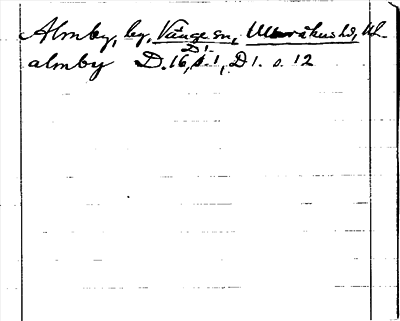 Almby, by, Vänge sn, Ulleråkers hd, Upl.
D1.
almby D.16, s.1, D 1. s. 12